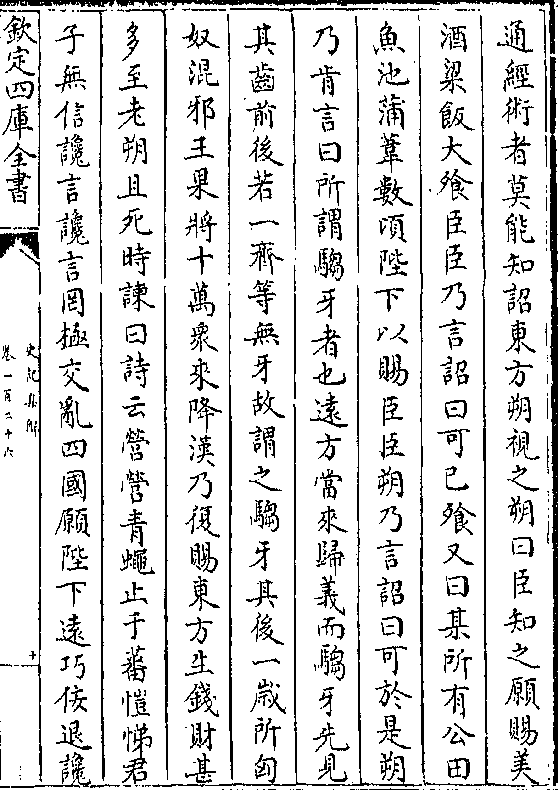 通經術者莫能知詔東方朔視之朔曰臣知之願賜美
酒粱飯大飱臣臣乃言詔曰可已飱又曰某所有公田
魚池蒲葦數頃陛下以賜臣臣朔乃言詔曰可於是朔
乃肯言曰所謂騶牙者也遠方當來歸義而騶牙先見
其齒前後若一齊等無牙故謂之騶牙其後一歲所匈
奴混邪王果將十萬衆來降漢乃復賜東方生錢財甚
多至老朔且死時諫曰詩云營營青蠅止于蕃愷悌君
子無信讒言讒言罔極交亂四國願陛下遠巧佞退讒
欽定四庫全書
史記集解
卷一百二十六
十